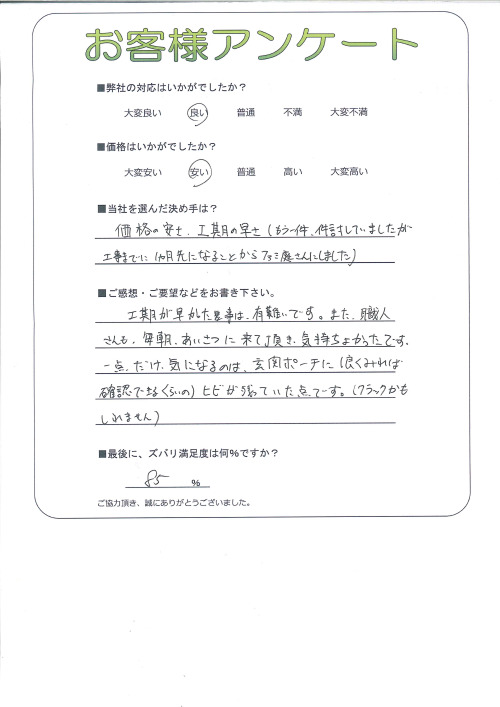 お客様アンケート
■弊社の対応はいかがでしたか？
大変良い 良い 普通 不満 大変不満
■価格はいかがでしたか？
大変安い 安い 普通 高い 大変高い
■当社を選んだ決め手は？
価格の安さ、工期の早さ(もう一件、件討していましたが
工事までに1ヵ月先になることからファミ庭さんにしました)
■ご感想・ご要望などをお書き下さい。
工期が早かった事は、有難いです。また、職人
さんも、毎朝、あいさつに来て頂き、気持ちよかったです。
一点、だけ、気になるのは、玄関ポーチに(良くみれば
確認できるくらいの)ヒビが張っていた点です。(クラックかも
しれません)
■最後に、ズバリ満足度は何％ですか？
85 ％
ご協力頂き、誠にありがとうございました。